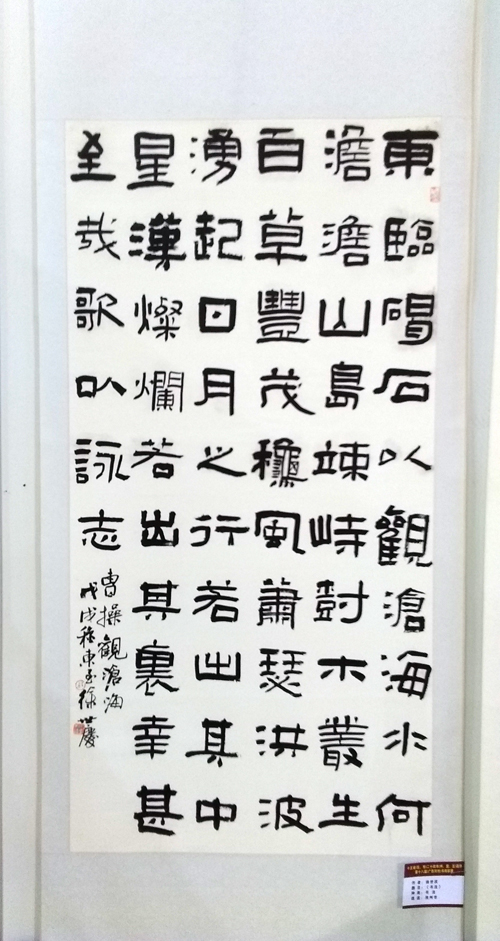 東臨碣石以觀滄海水何
澹澹山島竦峙樹木叢生
百草豐茂穐風蕭瑟洪波
湧起日月之行若出其中
星漢燦爛若出其裏幸甚
至哉歌以詠志
曹操觀滄海
戊戌秋東至徐世慶